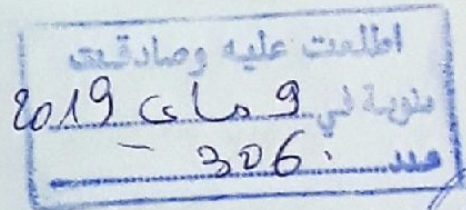 اطلعت عليه وصادقت
منوبة في 9 ماي 2019
عدد 306